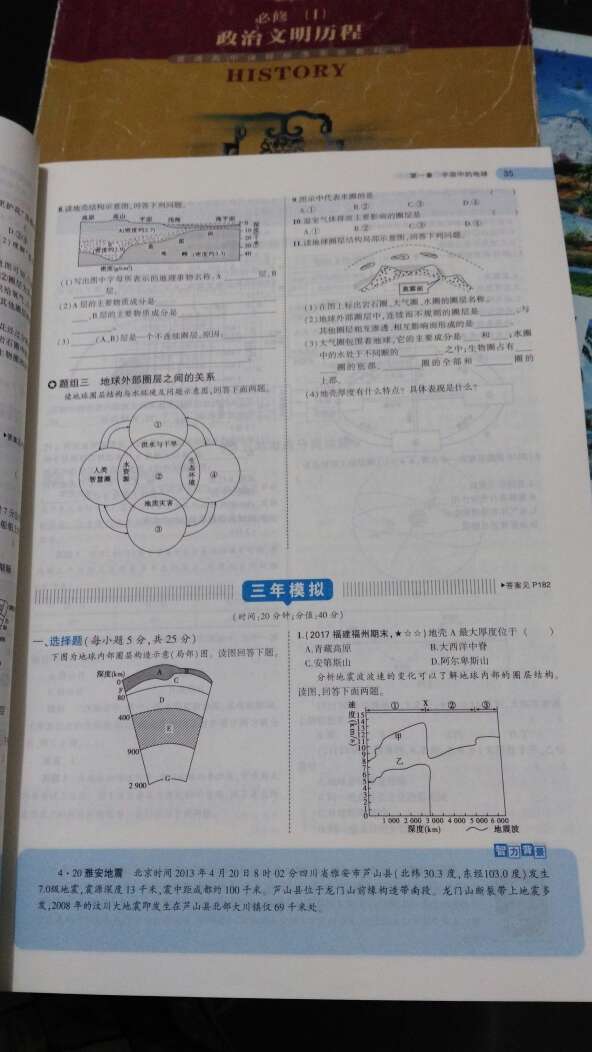 必修 (Ⅰ)
政治文明历程
HISTORY
第一章 宇宙中的地球 35
8.读地壳结构示意图,回答下列问题。
高原 高山 平原 浅海 海平面
A(密度约2.7)
0
10
20
30
40
密度(g/cm³)
(1)写出图中字母所表示的地理事物名称。A 层,B
层。
(2)A层的主要物质成分是
,B层的主要物质成分是
。
(3) (A、B)层是一个不连续圈层,原因:
题组三 地球外部圈层之间的关系
读地球圈层结构与水环境及问题示意图,回答下面两题。
①
洪水与干旱
人类智慧圈
水资源
②
生态环境
④
地质灾害
③
9.图示中代表水圈的是 ( )
A.① B.② C.③ D.④
10.温室气体排放主要影响的圈层是 ( )
A.① B.② C.③ D.④
11.读地球圈层结构局部示意图,回答下列问题。
莫霍面
(1)在图上标出岩石圈、大气圈、水圈的圈层名称。
(2)地球外部圈层中,连续而不规则的圈层是 ,与
其他圈层相互渗透、相互影响而形成的是 。
(3)大气圈包围着地球,它的主要成分是 和 ,水圈
中的水处于不间断的 之中;生物圈占有
圈的底部、 圈的全部和 圈的
上部。
(4)地壳厚度有什么特点?具体表现是什么?
三年模拟
▶答案见 P182
(时间:20分钟;分值:40分)
一、选择题(每小题5分,共25分)
下图为地球内部圈层构造示意(局部)图。读图回答下题。
深度(km)
0
F
80
400
900
2 900
A
B
C
D
E
G
1.(2017福建福州期末,★☆☆)地壳A最大厚度位于 ( )
A.青藏高原 B.大西洋中脊
C.安第斯山 D.阿尔卑斯山
分析地震波波速的变化可以了解地球内部的圈层结构。
读图,回答下面两题。
速度(km/s)
① X ② ③
15
14
13
12
11
10
9
8
7
6
5
4
3
2
1
0
甲
乙
1 000 2 000 3 000 4 000 5 000 6 000
深度(km) 地震波
智力背景
4·20雅安地震 北京时间2013年4月20日8时02分四川省雅安市芦山县(北纬30.3度,东经103.0度)发生
7.0级地震,震源深度13千米,震中距成都约100千米。芦山县位于龙门山前缘构造带南段。龙门山断裂带上地震多
发,2008年的汶川大地震即发生在芦山县北部大川镇仅69千米处。